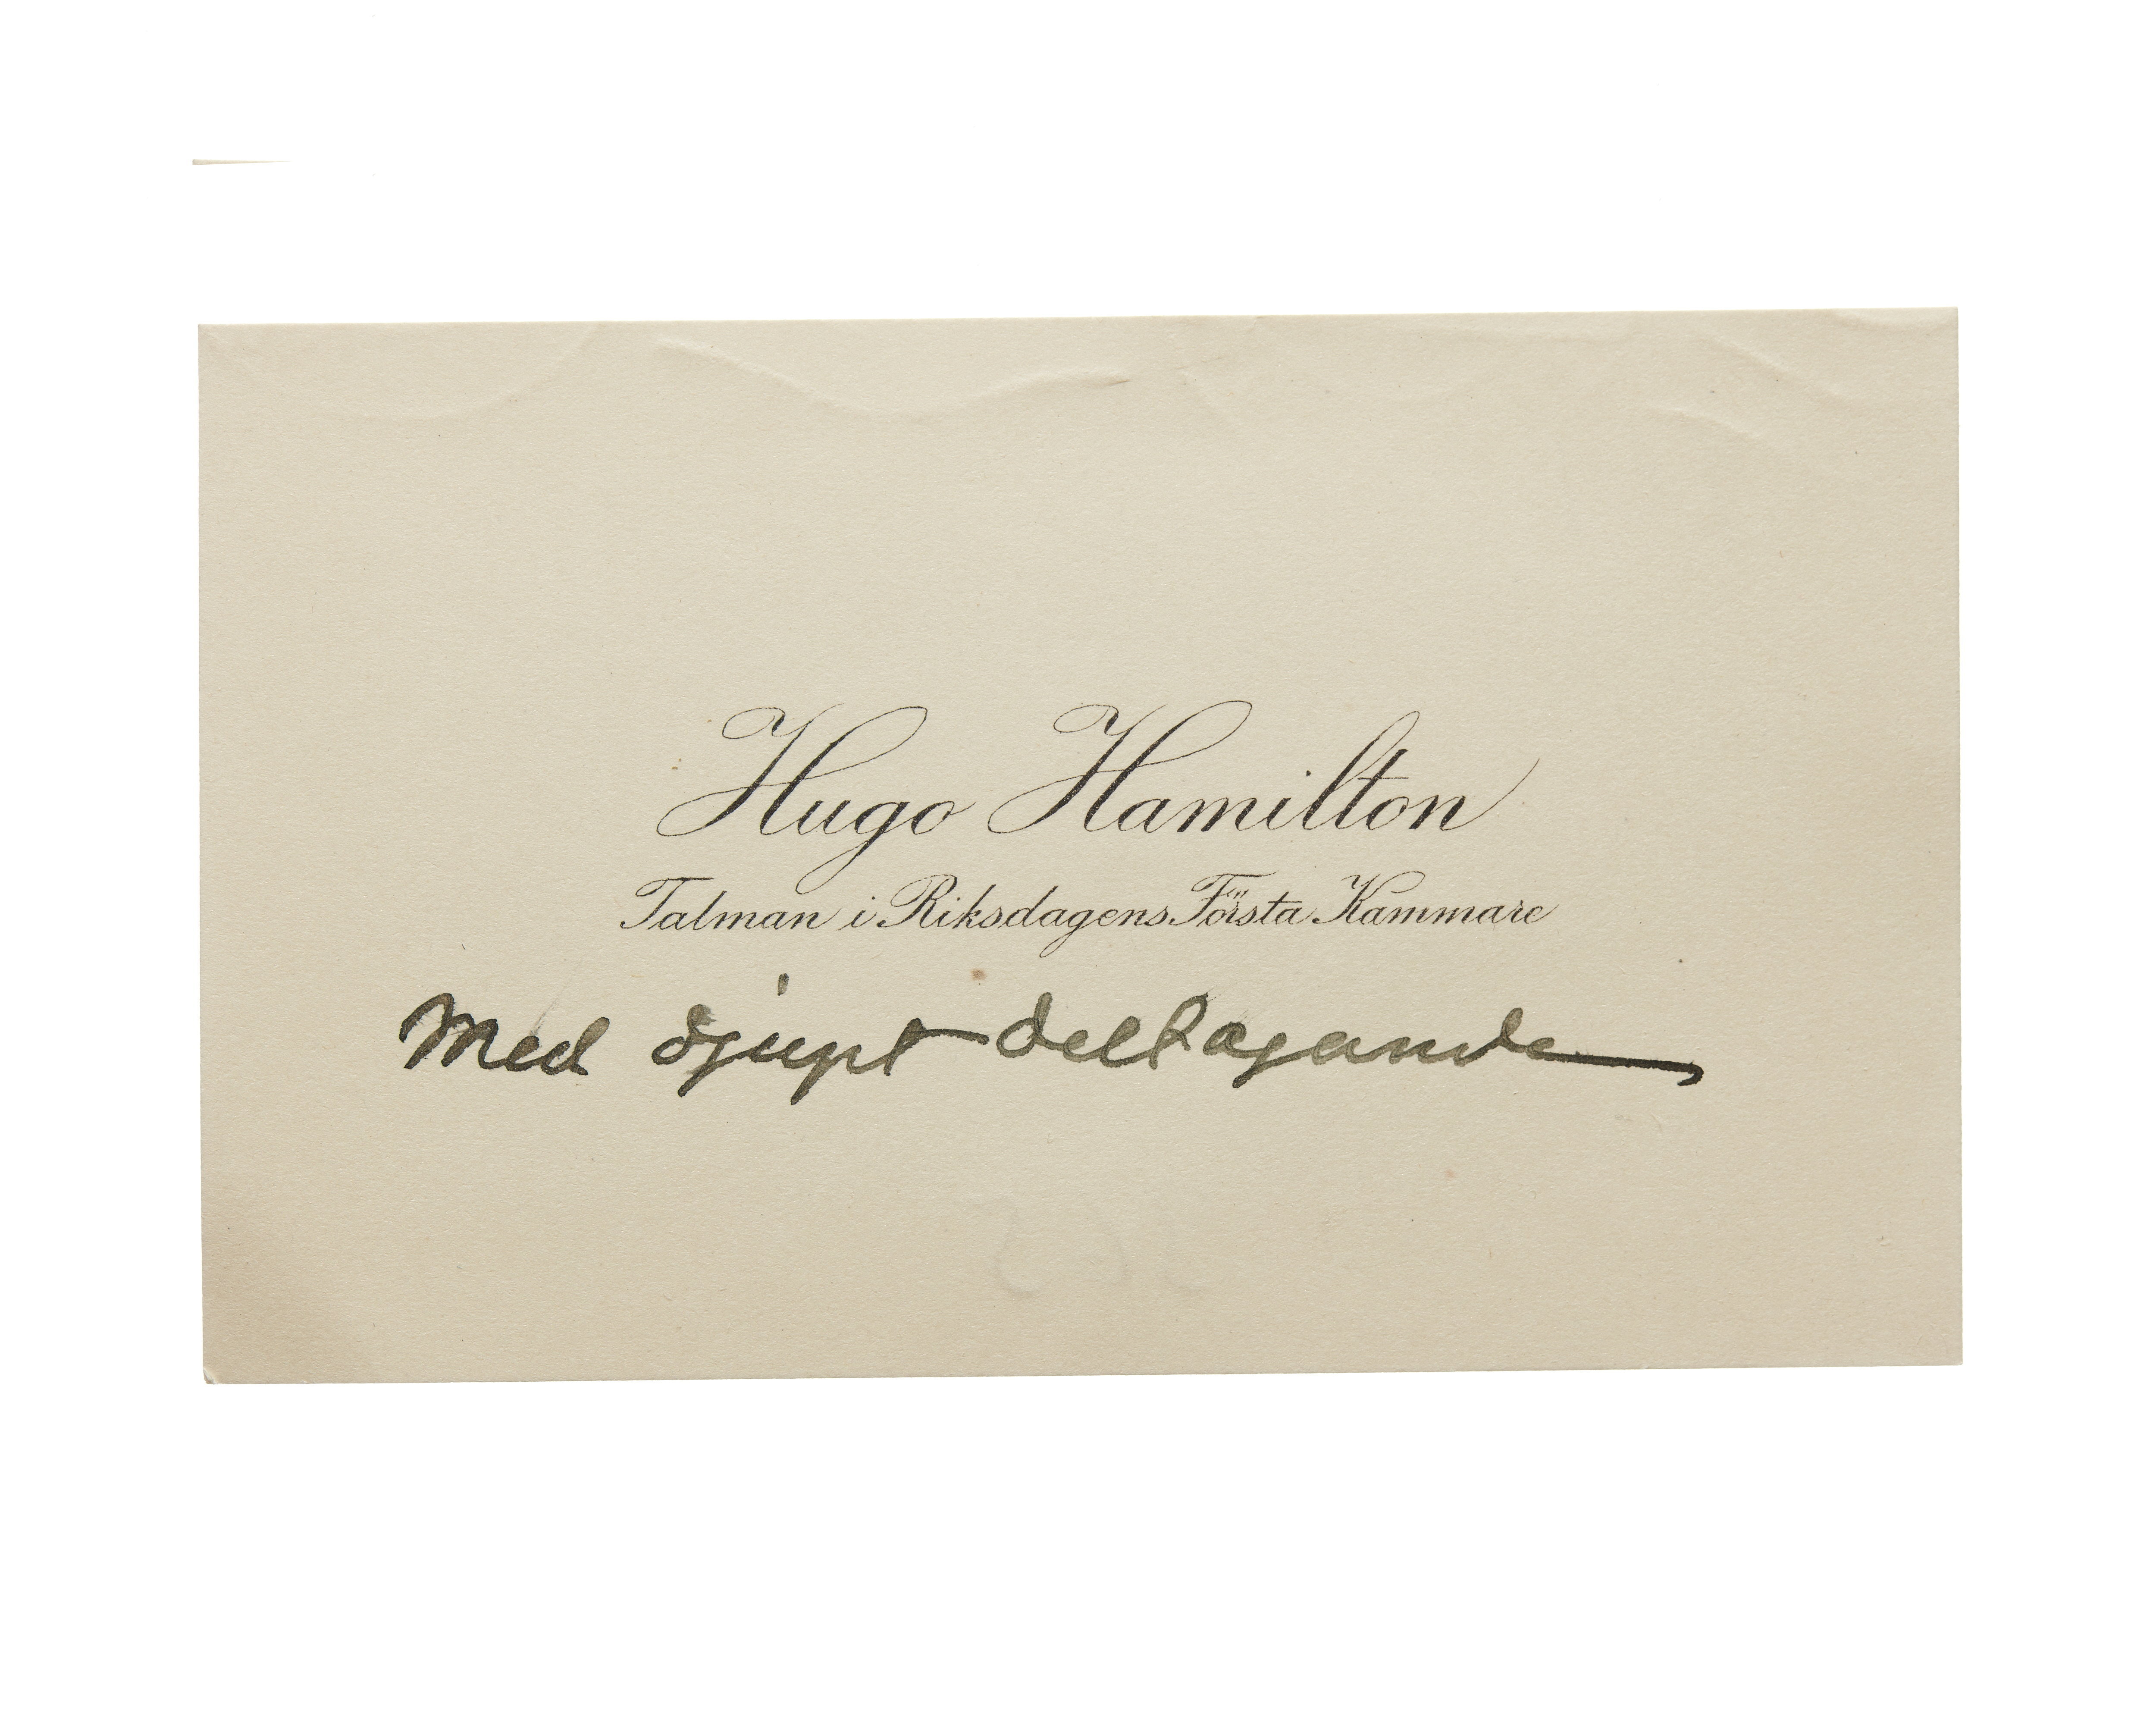 Hugo Hamilton
Talman i Riksdagens Första Kammare
Med djupt deltagande